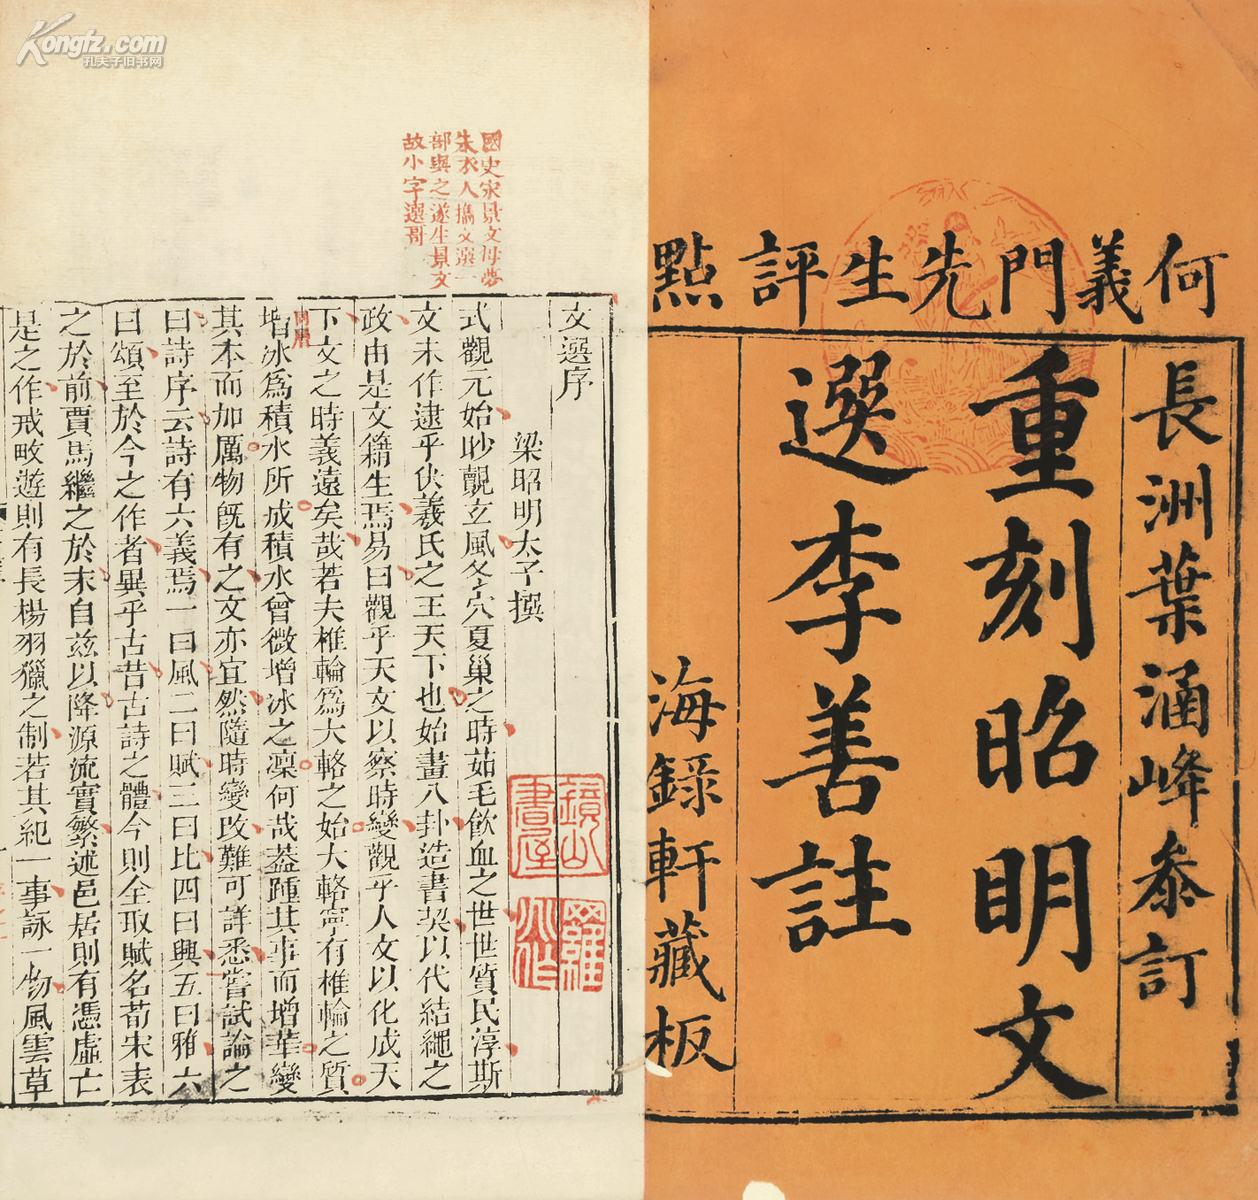 何義門先生評點
長洲葉涵峰叅訂
重刻昭明文
選李善註
海錄軒藏板
國史宋景文母夢
朱衣人擕文選一
部與之遂生景文
故小字選哥
文選序
梁昭明太子撰
式觀元始眇覿玄風冬穴夏巢之時茹毛飲血之世世質民淳斯
文未作逮乎伏羲氏之王天下也始畫八卦造書契以代結繩之
政由是文籍生焉易曰觀乎天文以察時變觀乎人文以化成天
下文之時義遠矣哉若夫椎輪爲大輅之始大輅寧有椎輪之質
增冰爲積水所成積水曾微增冰之凜何哉葢踵其事而增華變
其本而加厲物既有之文亦宜然隨時變改難可詳悉嘗試論之
曰詩序云詩有六義焉一曰風二曰賦三曰比四曰興五曰雅六
曰頌至於今之作者異乎古昔古詩之體今則全取賦名荀宋表
之於前賈馬繼之於末自兹以降源流實繁述邑居則有憑虛亡
是之作戒畋遊則有長楊羽獵之制若其紀一事詠一物風雲草
鏡山書屋
Kongfz.com
孔夫子旧书网